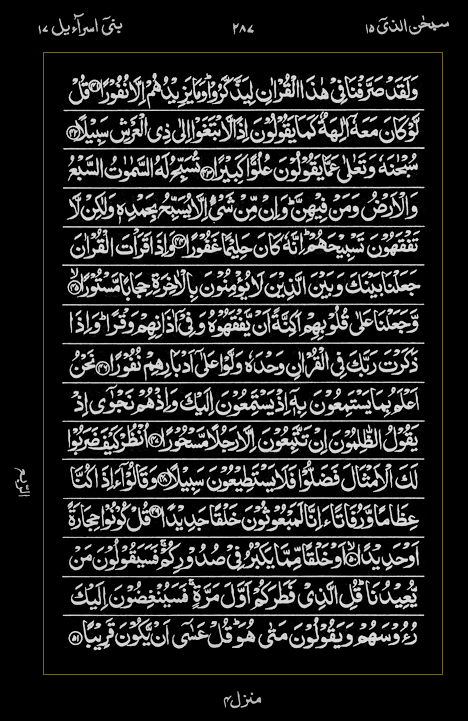 سبحٰن الذیٓ ۱۵ ۲۸۷ بنیٓ اسرآءیل ۱۷
وَلَقَدْ صَرَّفْنَا فِیْ هٰذَا الْقُرْاٰنِ لِیَذَّكَّرُوْا ؕ وَمَا یَزِیْدُهُمْ اِلَّا نُفُوْرًا ﴿۴۱﴾ قُلْ
لَّوْ كَانَ مَعَهٗۤ اٰلِهَةٌ كَمَا یَقُوْلُوْنَ اِذًا لَّابْتَغَوْا اِلٰی ذِی الْعَرْشِ سَبِیْلًا ﴿۴۲﴾
سُبْحٰنَهٗ وَتَعٰلٰی عَمَّا یَقُوْلُوْنَ عُلُوًّا كَبِیْرًا ﴿۴۳﴾ تُسَبِّحُ لَهُ السَّمٰوٰتُ السَّبْعُ
وَالْاَرْضُ وَمَنْ فِیْهِنَّ ؕ وَاِنْ مِّنْ شَیْءٍ اِلَّا یُسَبِّحُ بِحَمْدِهٖ وَلٰكِنْ لَّا
تَفْقَهُوْنَ تَسْبِیْحَهُمْ ؕ اِنَّهٗ كَانَ حَلِیْمًا غَفُوْرًا ﴿۴۴﴾ وَاِذَا قَرَاْتَ الْقُرْاٰنَ
جَعَلْنَا بَیْنَكَ وَبَیْنَ الَّذِیْنَ لَا یُؤْمِنُوْنَ بِالْاٰخِرَةِ حِجَابًا مَّسْتُوْرًا ﴿۴۵﴾
وَّجَعَلْنَا عَلٰی قُلُوْبِهِمْ اَكِنَّةً اَنْ یَّفْقَهُوْهُ وَفِیْۤ اٰذَانِهِمْ وَقْرًا ؕ وَاِذَا
ذَكَرْتَ رَبَّكَ فِی الْقُرْاٰنِ وَحْدَهٗ وَلَّوْا عَلٰۤی اَدْبَارِهِمْ نُفُوْرًا ﴿۴۶﴾ نَحْنُ
اَعْلَمُ بِمَا یَسْتَمِعُوْنَ بِهٖۤ اِذْ یَسْتَمِعُوْنَ اِلَیْكَ وَاِذْ هُمْ نَجْوٰۤی اِذْ
یَقُوْلُ الظّٰلِمُوْنَ اِنْ تَتَّبِعُوْنَ اِلَّا رَجُلًا مَّسْحُوْرًا ﴿۴۷﴾ اُنْظُرْ كَیْفَ ضَرَبُوْا
لَكَ الْاَمْثَالَ فَضَلُّوْا فَلَا یَسْتَطِیْعُوْنَ سَبِیْلًا ﴿۴۸﴾ وَقَالُوْۤا ءَاِذَا كُنَّا
عِظَامًا وَّرُفَاتًا ءَاِنَّا لَمَبْعُوْثُوْنَ خَلْقًا جَدِیْدًا ﴿۴۹﴾ قُلْ كُوْنُوْا حِجَارَةً
اَوْ حَدِیْدًا ﴿۵۰﴾ اَوْ خَلْقًا مِّمَّا یَكْبُرُ فِیْ صُدُوْرِكُمْ ۚ فَسَیَقُوْلُوْنَ مَنْ
یُّعِیْدُنَا ؕ قُلِ الَّذِیْ فَطَرَكُمْ اَوَّلَ مَرَّةٍ ۚ فَسَیُنْغِضُوْنَ اِلَیْكَ
رُءُوْسَهُمْ وَیَقُوْلُوْنَ مَتٰی هُوَ ؕ قُلْ عَسٰۤی اَنْ یَّكُوْنَ قَرِیْبًا ﴿۵۱﴾
منزل ۴